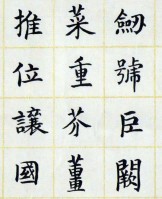 劒號巨闕
菜重芥薑
推位讓國